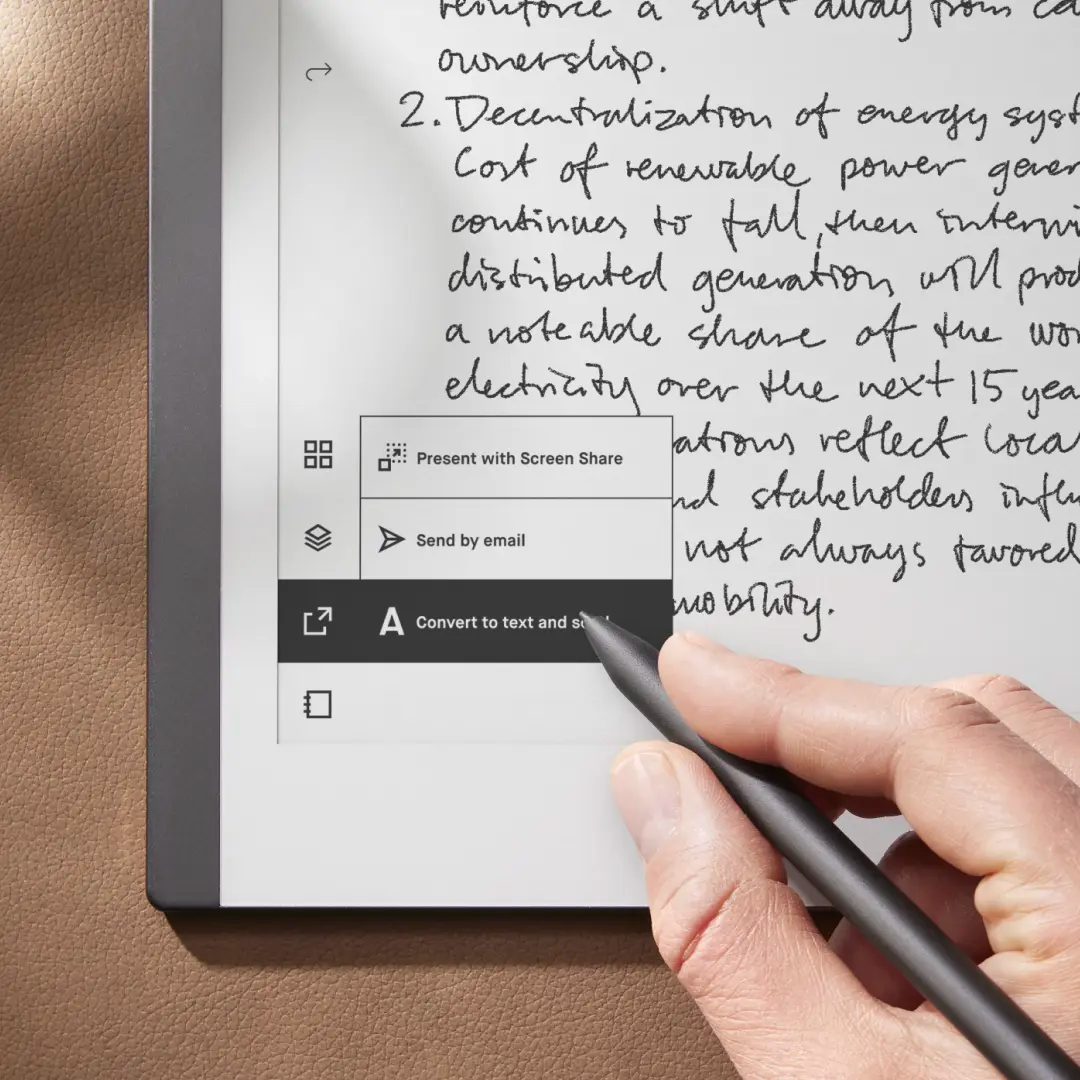 reinforce a shift away from
ownership.
2. Decentralization of energy syst
Cost of renewable power gener
continues to fall, then intermi
distributed generation, will prod
a noteable share of the wor
electricity over the next 15 yea
ations reflect loca
nd stakeholders influ
not always favored
mobility.
Present with Screen Share
Send by email
A Convert to text and